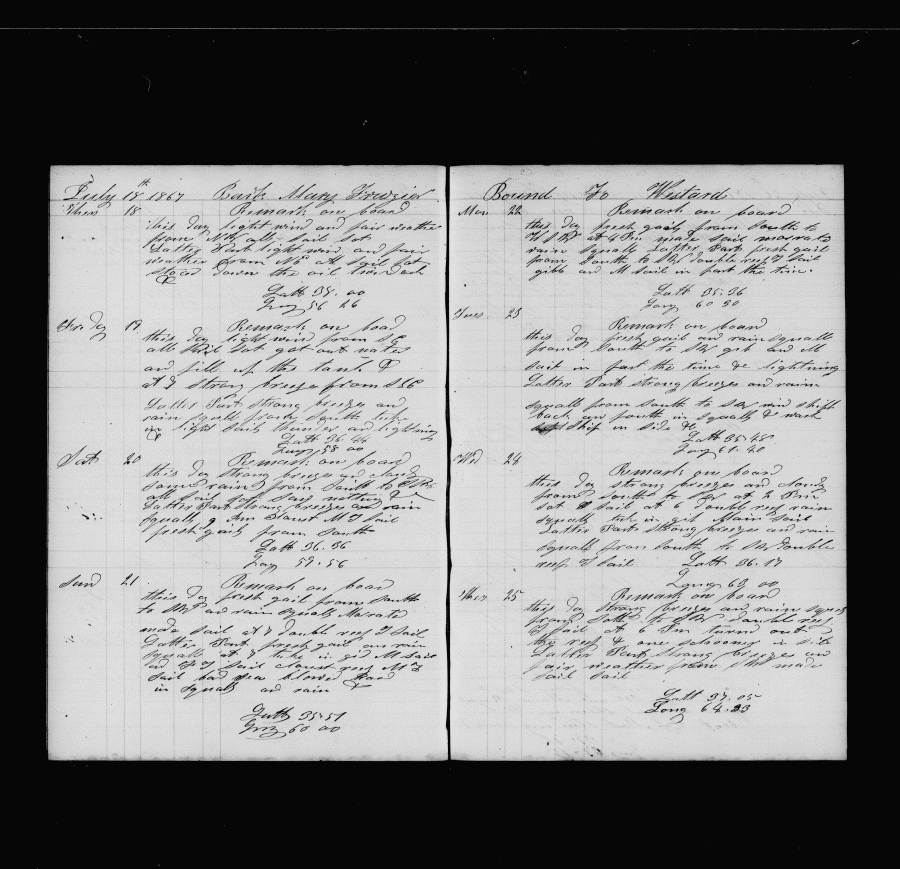 July 18th 1867 Bark Mary Frazier
Thur 18 Remark on board
this day light wind and fair weather
from all sail sot
Latter Part light wind and fair
weather from all sail sot
down the oil
Latt 35. 00
Long 56 26
Fri day 19 Remark on boad
this day light wind from SE
all sail sot got out water
and fill up the tank &
at 7 strong breeze from SSE
Latter Part strong breezes and
rain squall from South take
in light sails thunder and lightning
&
Latt 36 44
Long 58 00
Sat 20 Remark on board
this day strong breeze and cloudy
some rain from South to
all sail sot nothing
Latter Part strong breezes and rain
squally M T sail
fresh gail from south
Latt 36. 36
Log 59. 56
Sund 21 Remark on boad
this day fresh gail from South
to SW ad rain squall
made sail at 7 double reef T sail
Latter Part fresh gail and rain
squall at 7 take in M sail
ad T sail reef M T
sail bad sea blowed hard
in squalls ad rain &
Latt 35. 51
Long 60 00
Bound To Westard
Mon 22 Remark on board
this day fresh gail from South to
made sail
rain squall Latter Part fresh gail
from South to SW double reef T sail
gibb and M sail in part the time.
Latt 35. 36
Long 60 30
Tues. 23
Remark on board
this day fresh gail and rain squall
from South to SW gib and M
sail in part the time & lightning
Latter Part strong breezes and rain
squall from South to SW wind shift
back on south in squalls &
ship in side &c
Latt 35. 48
Long 61. 20
Wed 24
Remark on board
this day strong breezes and cloudy
from South to SW at 2 Pm
sot sail at 6 doubl reef rain
squally take in gib Main sail
Latter Part strong breezes and rain
squall from South to SW double
reef T sail Latt 36. 17
Long 63 00
Thur 25 Remark on board
this day strong breezes and rain squal
from South to SW double reef
T sail at 6 Pm turnd out
the reef & one schooner in site
Latter Part strong breezes and
fair weather from made
sail sail
Latt 37. 05
Long 64. 33